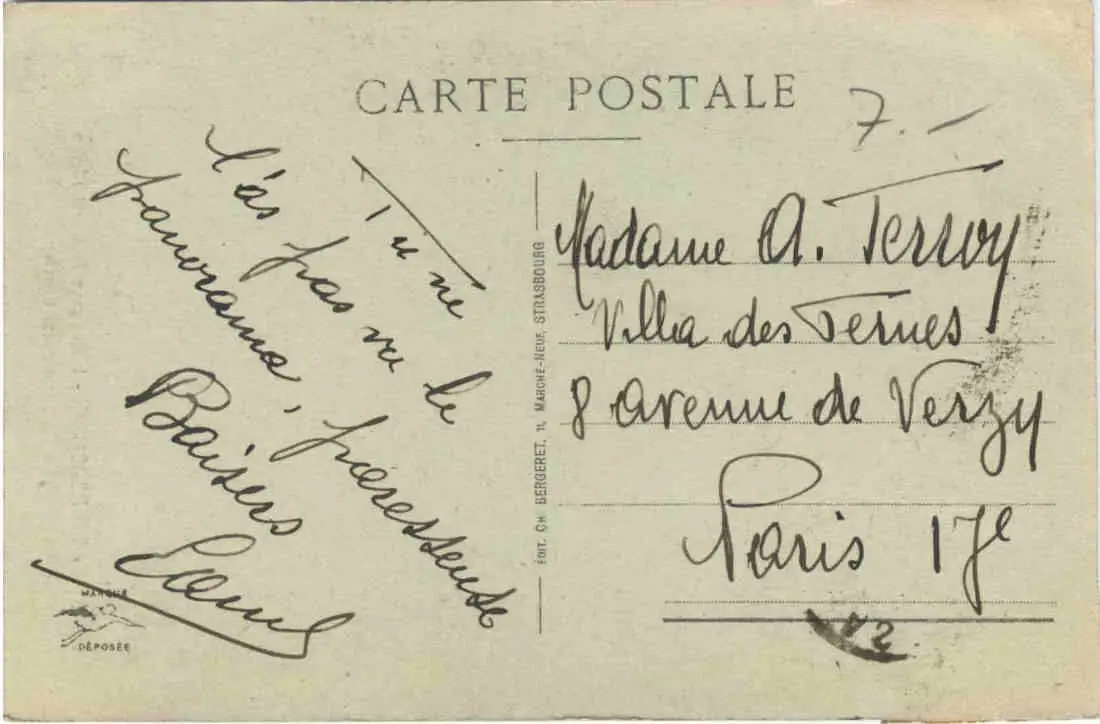 CARTE POSTALE
7.-
Tu ne
l'as pas vu le
panorama, paresseuse
Baisers
ÉDIT. CH. BERGERET, 11, MARCHÉ-NEUF, STRASBOURG
Madame A. Terroy
Villa des Ternes
8 avenue de Verzy
Paris 17e
MARQUE
DÉPOSÉE